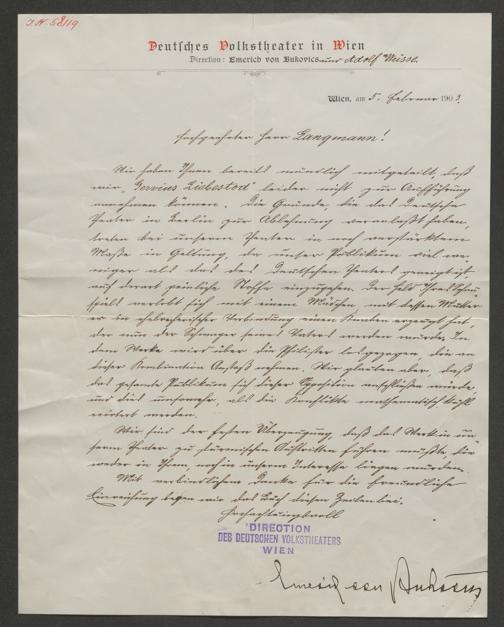 I.N. 58119
Deutsches Volkstheater in Wien
Direction: Emerich von Bukovics und Adolf Weisse.
Wien, am 5. Februar 1903.
Hochgeehrter Herr Langmann!
Wir haben Ihnen bereits mündlich mitgeteilt, daß
wir „Gervins Liebestod“ leider nicht zur Aufführung
annehmen können. Die Gründe, die das Deutsche
Theater in Berlin zur Ablehnung veranlaßt haben,
treten bei unserem Theater in noch verstärktem
Maße in Geltung, da unser Publikum viel we-
niger als das des Deutschen Theaters geneigt ist
auf derart peinliche Stoffe einzugehen. Der Held Ihres Schau-
spiels verlobt sich mit einem Mädchen, mit dessen Mutter
er in ehebrecherischer Verbindung einen Knaben erzeugt hat,
der nun der Schwager seines Vaters werden würde. In
dem Werke wird über die Philister losgezogen, die an
dieser Kombination Anstoß nehmen. Wir glauben aber, daß
das gesamte Publikum sich dieser Opposition anschließen würde
und dies umsomehr, als die Konflikte mathematisch kühl
erörtert werden.
Wir sind der festen Überzeugung, daß das Werk in un-
serm Theater zu stürmischen Auftritten führen müßte, die
weder in Ihrem, noch in unserm Interesse liegen würden.
Mit verbindlichem Danke für die freundliche
Einreichung legen wir das Buch diesen Zeilen bei.
Hochachtungsvoll
DIRECTION
DES DEUTSCHEN VOLKSTHEATERS
WIEN
Emerich von Bukovics